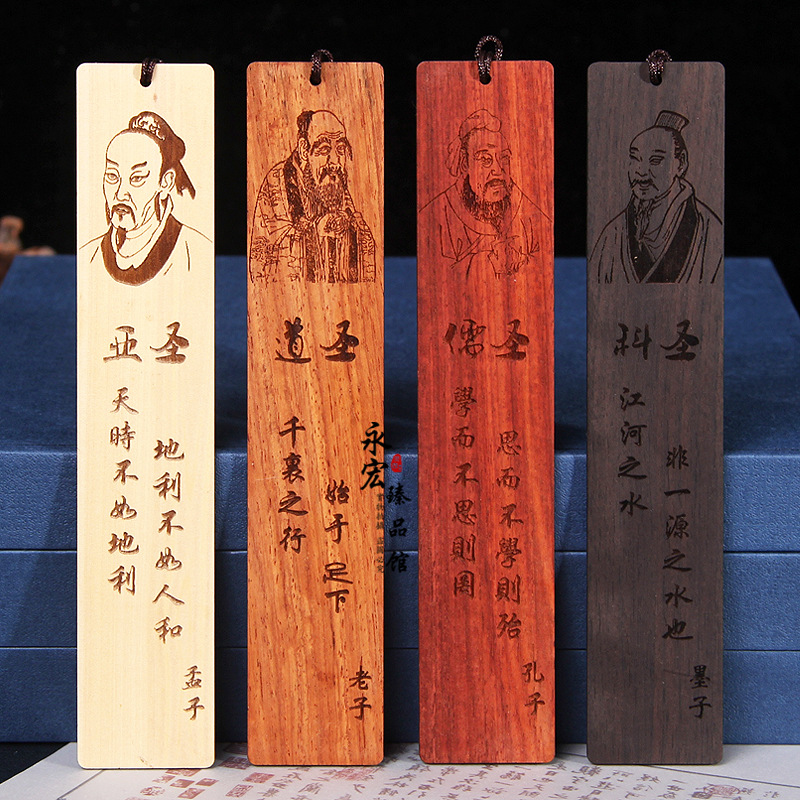 亚圣
天時不如地利
地利不如人和
孟子
道圣
千裏之行
始于足下
老子
儒圣
學而不思則罔
思而不學則殆
孔子
科圣
江河之水
非一源之水也
墨子
永宏
臻品館